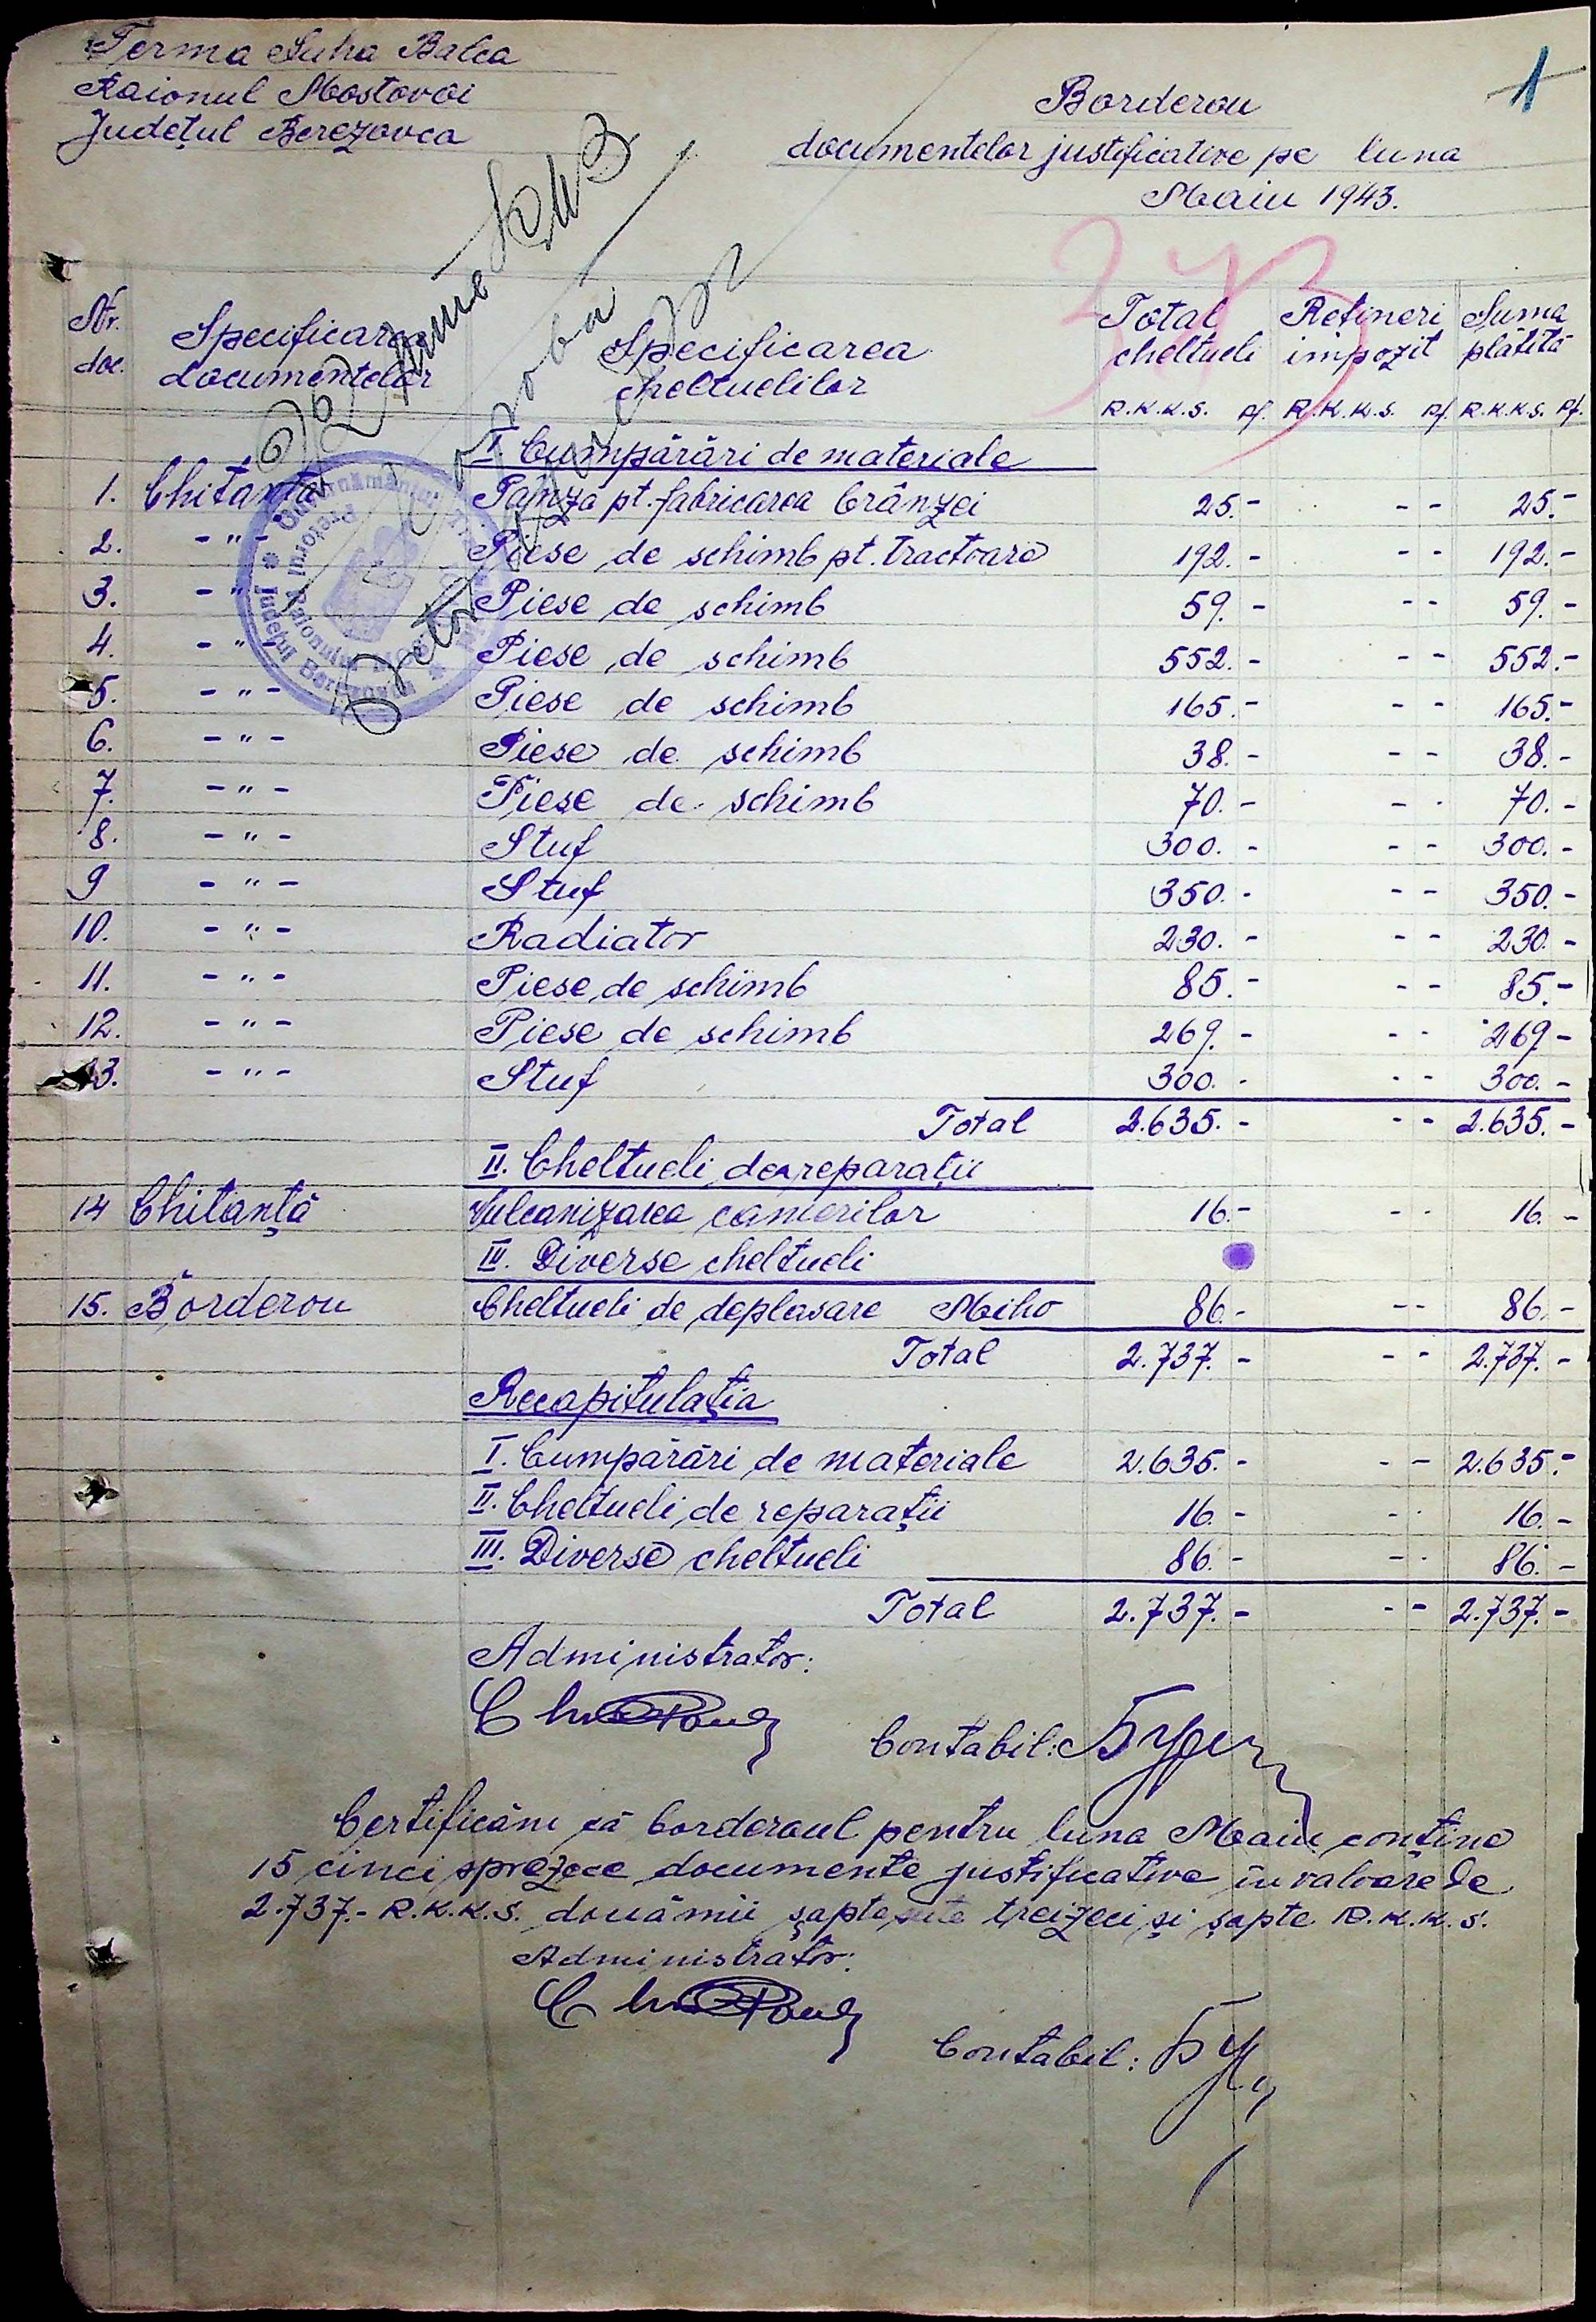 Ferma Suha Balca
Raionul Mostovoi
Județul Berezovca
1
Borderou
documentelor justificative pe luna
Maiu 1943.
Nr. doc. Specificarea documentelor Specificarea cheltuelilor Total cheltueli Rețineri impozit Suma plătită
R.K.K.S. pf. R.K.K.S. pf. R.K.K.S. pf.
I Cumpărări de materiale
1. Chitanța Pânză pt. fabricarea brânzei 25.- - - 25.-
2. -"- Piese de schimb pt. tractoare 192.- - - 192.-
3. -"- Piese de schimb 59.- - - 59.-
4. -"- Piese de schimb 552.- - - 552.-
5. -"- Piese de schimb 165.- - - 165.-
6. -"- Piese de schimb 38.- - - 38.-
7. -"- Piese de schimb 70.- - - 70.-
8. -"- Stuf 300.- - - 300.-
9 -"- Stuf 350.- - - 350.-
10. -"- Radiator 230.- - - 230.-
11. -"- Piese de schimb 85.- - - 85.-
12. -"- Piese de schimb 269.- - - 269.-
13. -"- Stuf 300.- - - 300.-
Total 2.635.- - - 2.635.-
II. Cheltueli de reparații
14 Chitanță Vulcanizarea camerilor 16.- - - 16.-
III. Diverse cheltueli
15. Borderou Cheltueli de deplasare Miho 86.- - - 86.-
Total 2.737.- - - 2.737.-
Recapitulația
I. Cumpărări de materiale 2.635.- - - 2.635.-
II. Cheltueli de reparații 16.- - - 16.-
III. Diverse cheltueli 86.- - - 86.-
Total 2.737.- - - 2.737.-
Administrator:
Contabil:
Certificăm că borderoul pentru luna Maiu conține
15 cinci sprezece documente justificative în valoare de
2.737.- R.K.K.S. două mii șapte sute treizeci și șapte R.K.K.S.
Administrator:
Contabil: